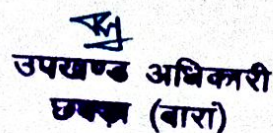 उपखण्ड अधिकारी
छबड़ा (बारा)